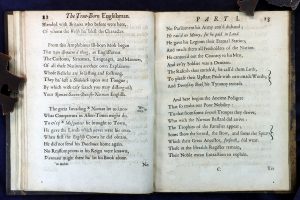 22 The True-Born Englishman.
Blended with Britains who before were here,
Of whom the Welsh ha' blest the Character.
From this Amphibious Ill-born Mob began
That vain ill-natur'd thing, an Englishman.
The Customs, Sirnames, Languages, and Manners,
Of all these Nations are their own Explainers:
Whose Relicks are so lasting and so strong,
They ha' left a Shiboleth upon our Tongue;
By which with easy search you may distinguish
Your Roman-Saxon-Danish-Norman English.
The great Invading Norman let us know
What Conquerors in After-Times might do.
To every Musqueteer he brought to Town,
He gave the Lands which never were his own.
When first the English Crown he did obtain,
He did not send his Dutchmen home again.
No Reassumptions in his Reign were known,
Davenant might there ha' let his Book alone.
No
PART I. 23
No Parliament his Army cou'd disband;
He rais'd no Money, for he paid in Land.
He gave his Legions their Eternal Station,
And made them all Freeholders of the Nation.
He canton'd out the Country to his Men,
And every Soldier was a Denizen.
The Rascals thus enrich'd, he call'd them Lords,
To please their Upstart Pride with new-made Words;
And Doomsday-Book his Tyranny records.
And here begins the Ancient Pedigree
That so exalts our Poor Nobility:
'Tis that from some French Trooper they derive,
Who with the Norman Bastard did arrive:
The Trophies of the Families appear;
Some show the Sword, the Bow, and some the Spear,
Which their Great Ancestor, forsooth, did wear.
These in the Heralds Register remain,
Their Noble mean Extraction to explain.
C
Yet